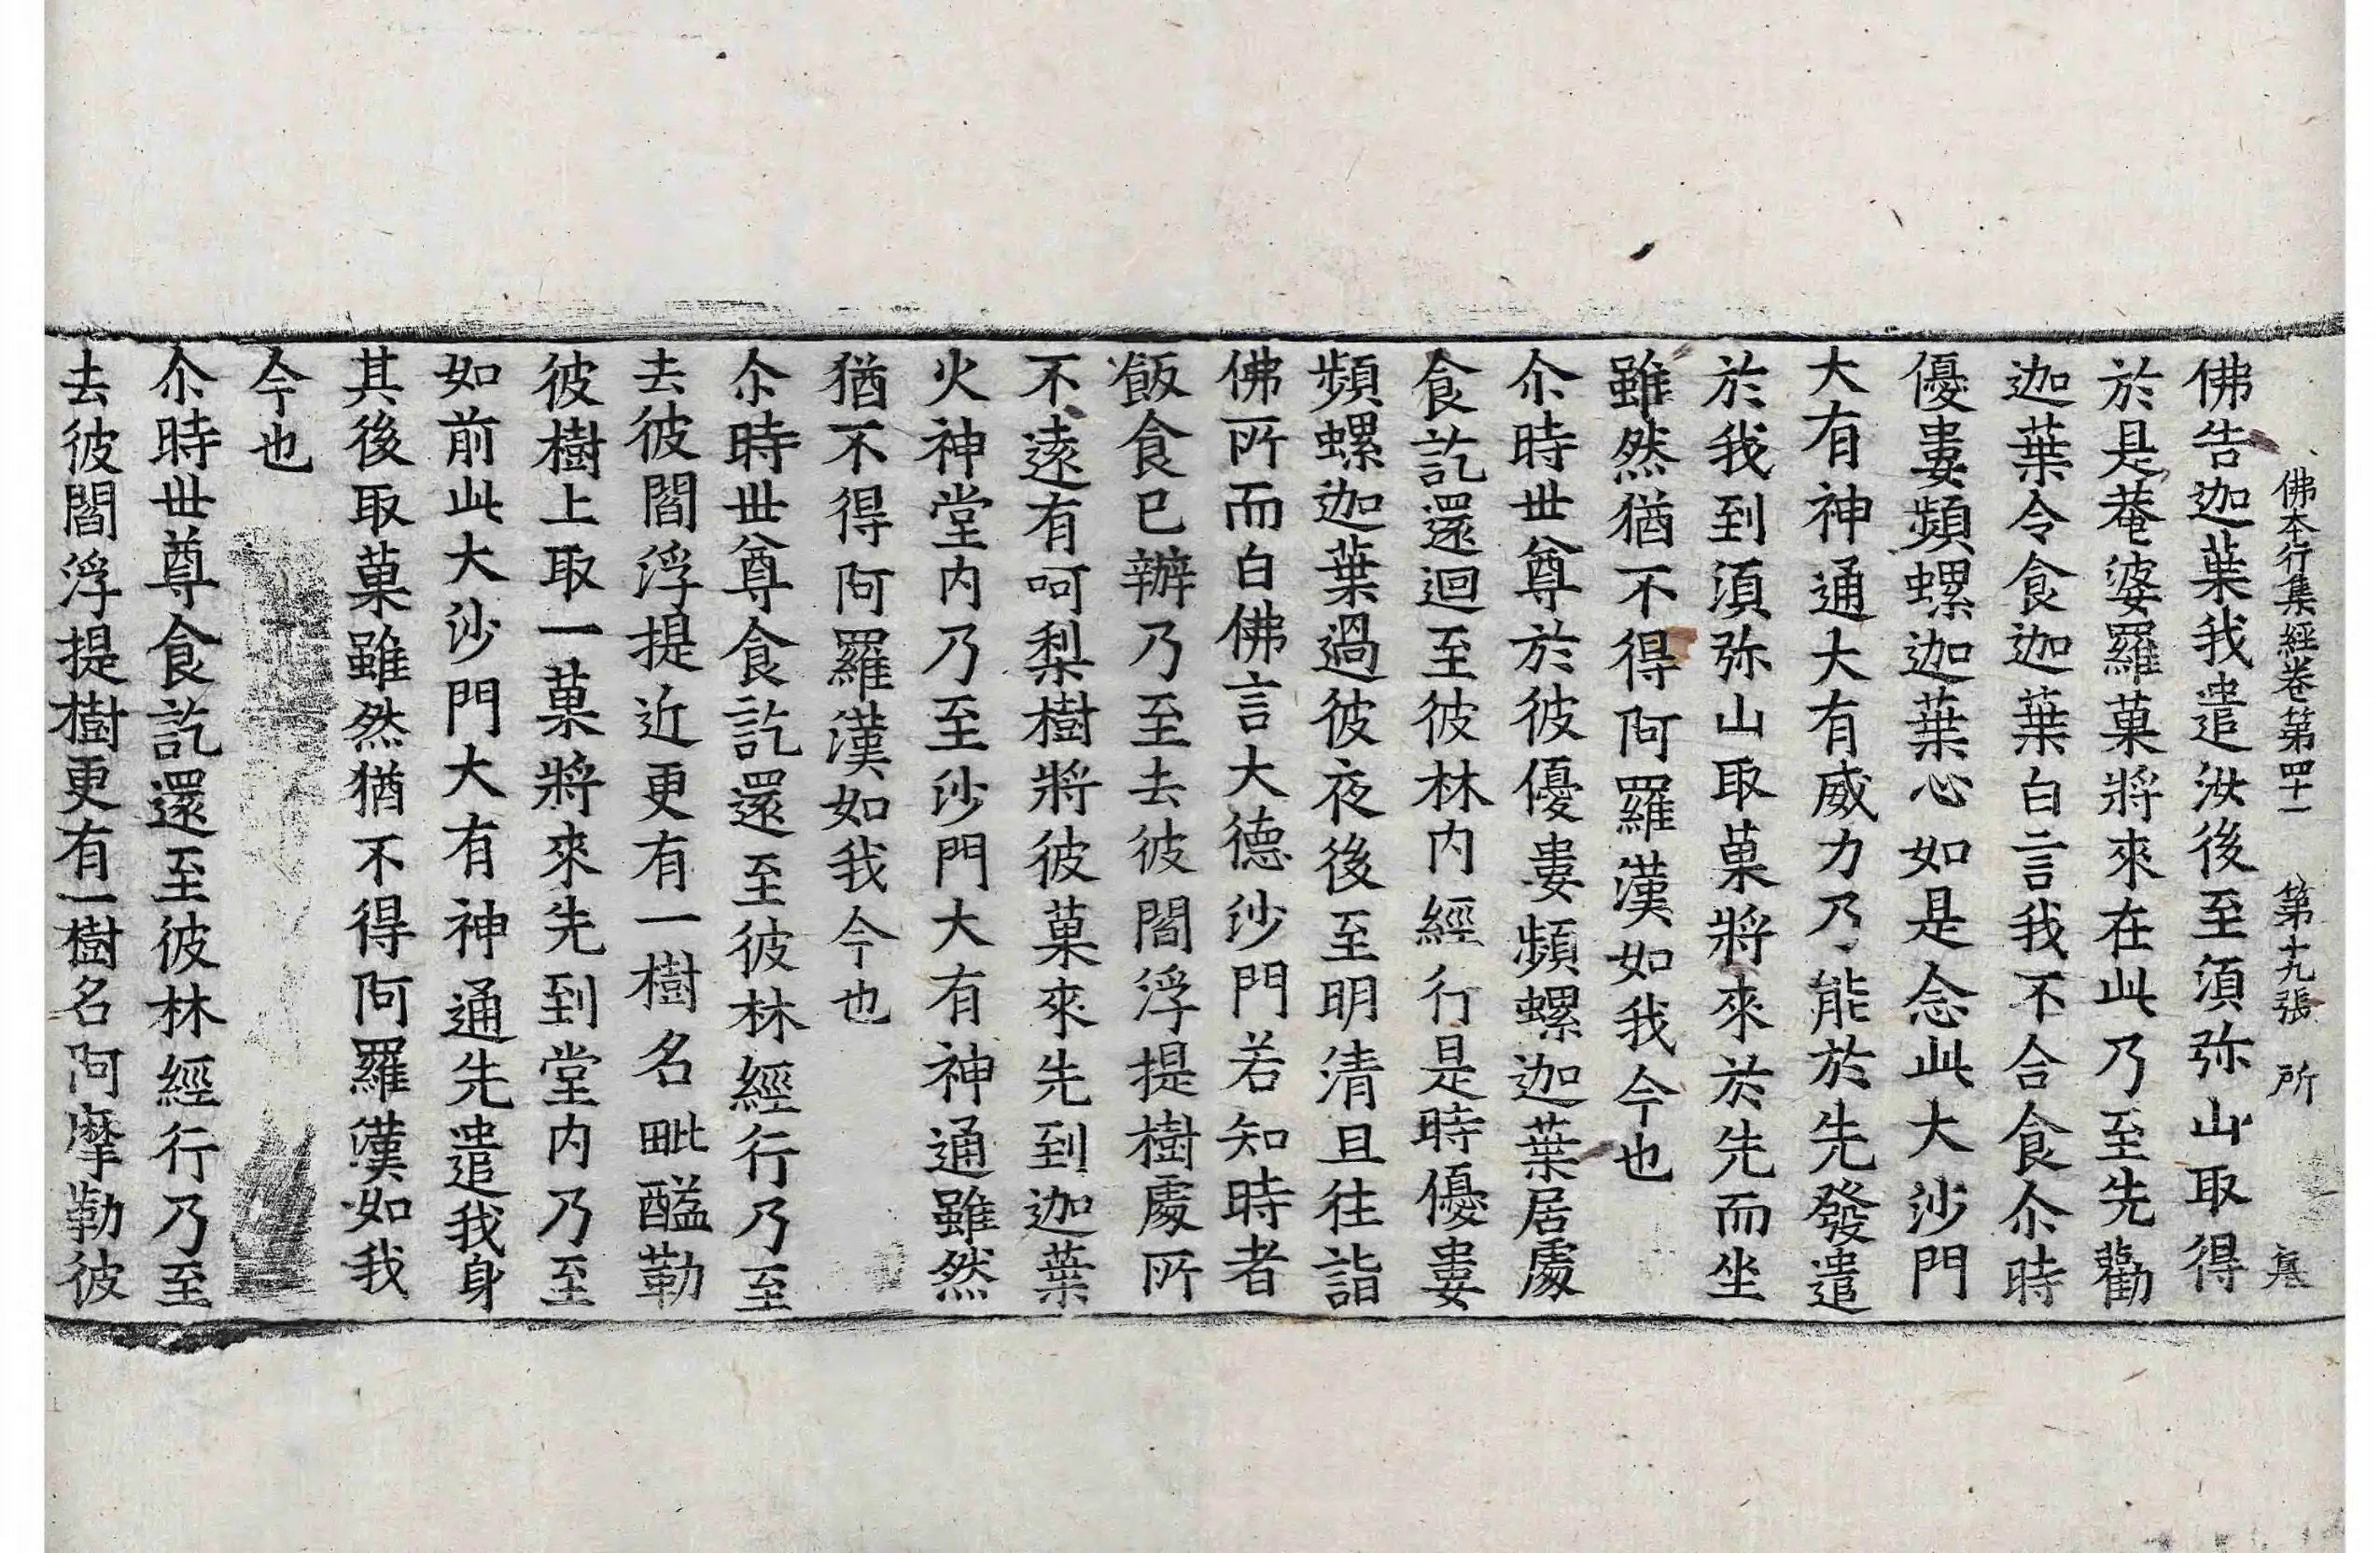 佛本行集經卷第四十一　第十九張　所
佛告迦葉我遣汝後至湏弥山取得
於是菴婆羅菓將來在此乃至先勸
迦葉令食迦葉白言我不合食尒時
優婁頻螺迦葉心如是念此大沙門
大有神通大有威力乃能於先發遣
於我到湏弥山取菓將來於先而坐
雖然猶不得阿羅漢如我今也
尒時世尊於彼優婁頻螺迦葉居處
食訖還迴至彼林内經行是時優婁
頻螺迦葉過彼夜後至明清旦往詣
佛所而白佛言大德沙門若知時者
飯食已辦乃至去彼閻浮提樹處所
不遠有呵梨樹將彼菓來先到迦葉
火神堂内乃至沙門大有神通雖然
猶不得阿羅漢如我今也
尒時世尊食訖還至彼林經行乃至
去彼閻浮提近更有一樹名毗醯勒
彼樹上取一菓將來先到堂内乃至
如前此大沙門大有神通先遣我身
其後取菓雖然猶不得阿羅漢如我
今也
尒時世尊食訖還至彼林經行乃至
去彼閻浮提樹更有一樹名阿摩勒彼